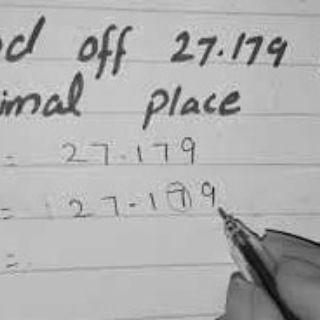 d off 27.179
imal place
= 27.179
= 27.179
=